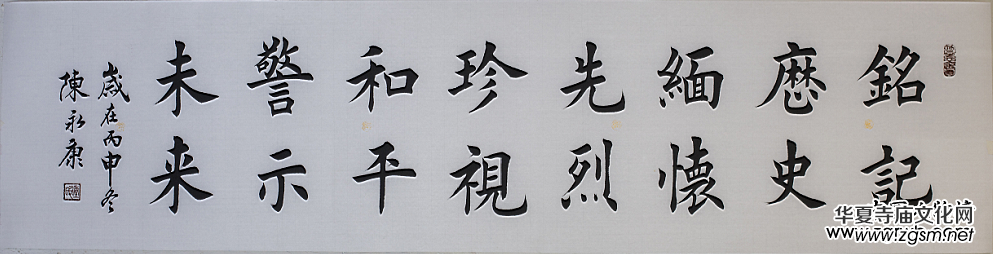 銘記
歷史
緬懷
先烈
珍視
和平
警示
未来
歳在丙申冬
陳永康
华夏寺庙文化网
www.zgsm.net